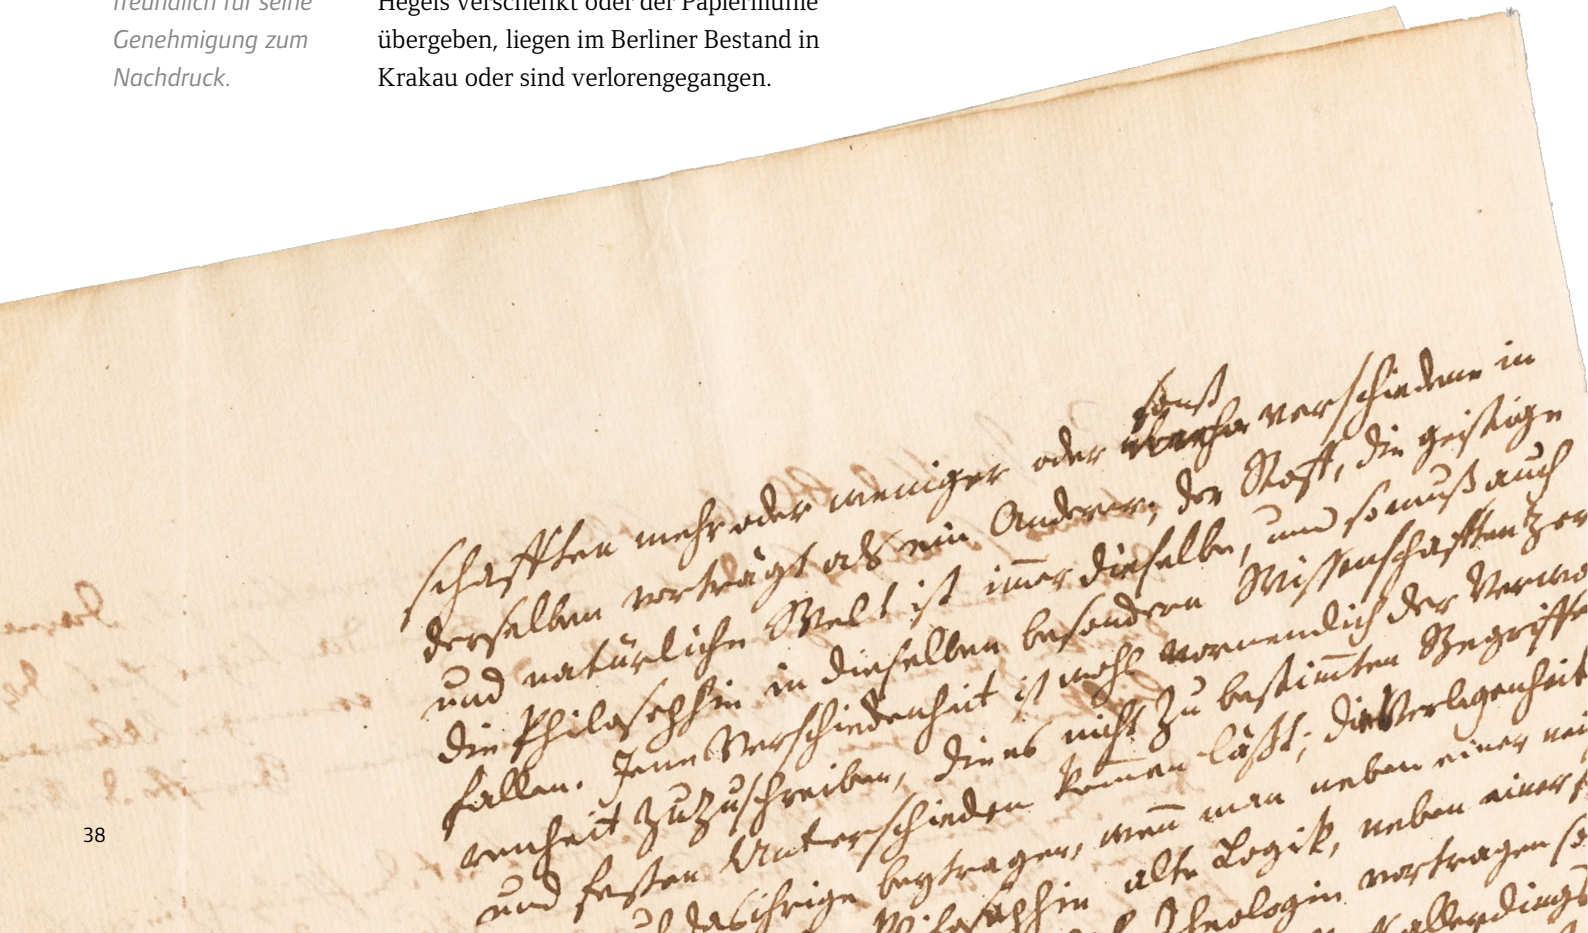 freundlich für seine
Genehmigung zum
Nachdruck.
Hegels verschenkt oder der Papiermühle
übergeben, liegen im Berliner Bestand in
Krakau oder sind verlorengegangen.
sonst
schafften mehr oder weniger oder verschiedene in
derselben vorträgt als ein Anderer; der Stoff, die geistige
und natürliche Welt ist im̅er dieselbe, und so muß auch
die Philosophie in dieselben besondern Wissenschafften zer
fallen. Jene Verschiedenheit ist wohl vornemlich der Verwo
renheit zuzuschreiben, die es nicht zu bestim̅ten Begriffe
und festen Unterschieden kom̅en läßt; die Verlegenheit
das ihrige beytragen, wen̅ man neben einer
Philosophie alte Logik, neben einer
Theologie vortragen so
allerdings
38